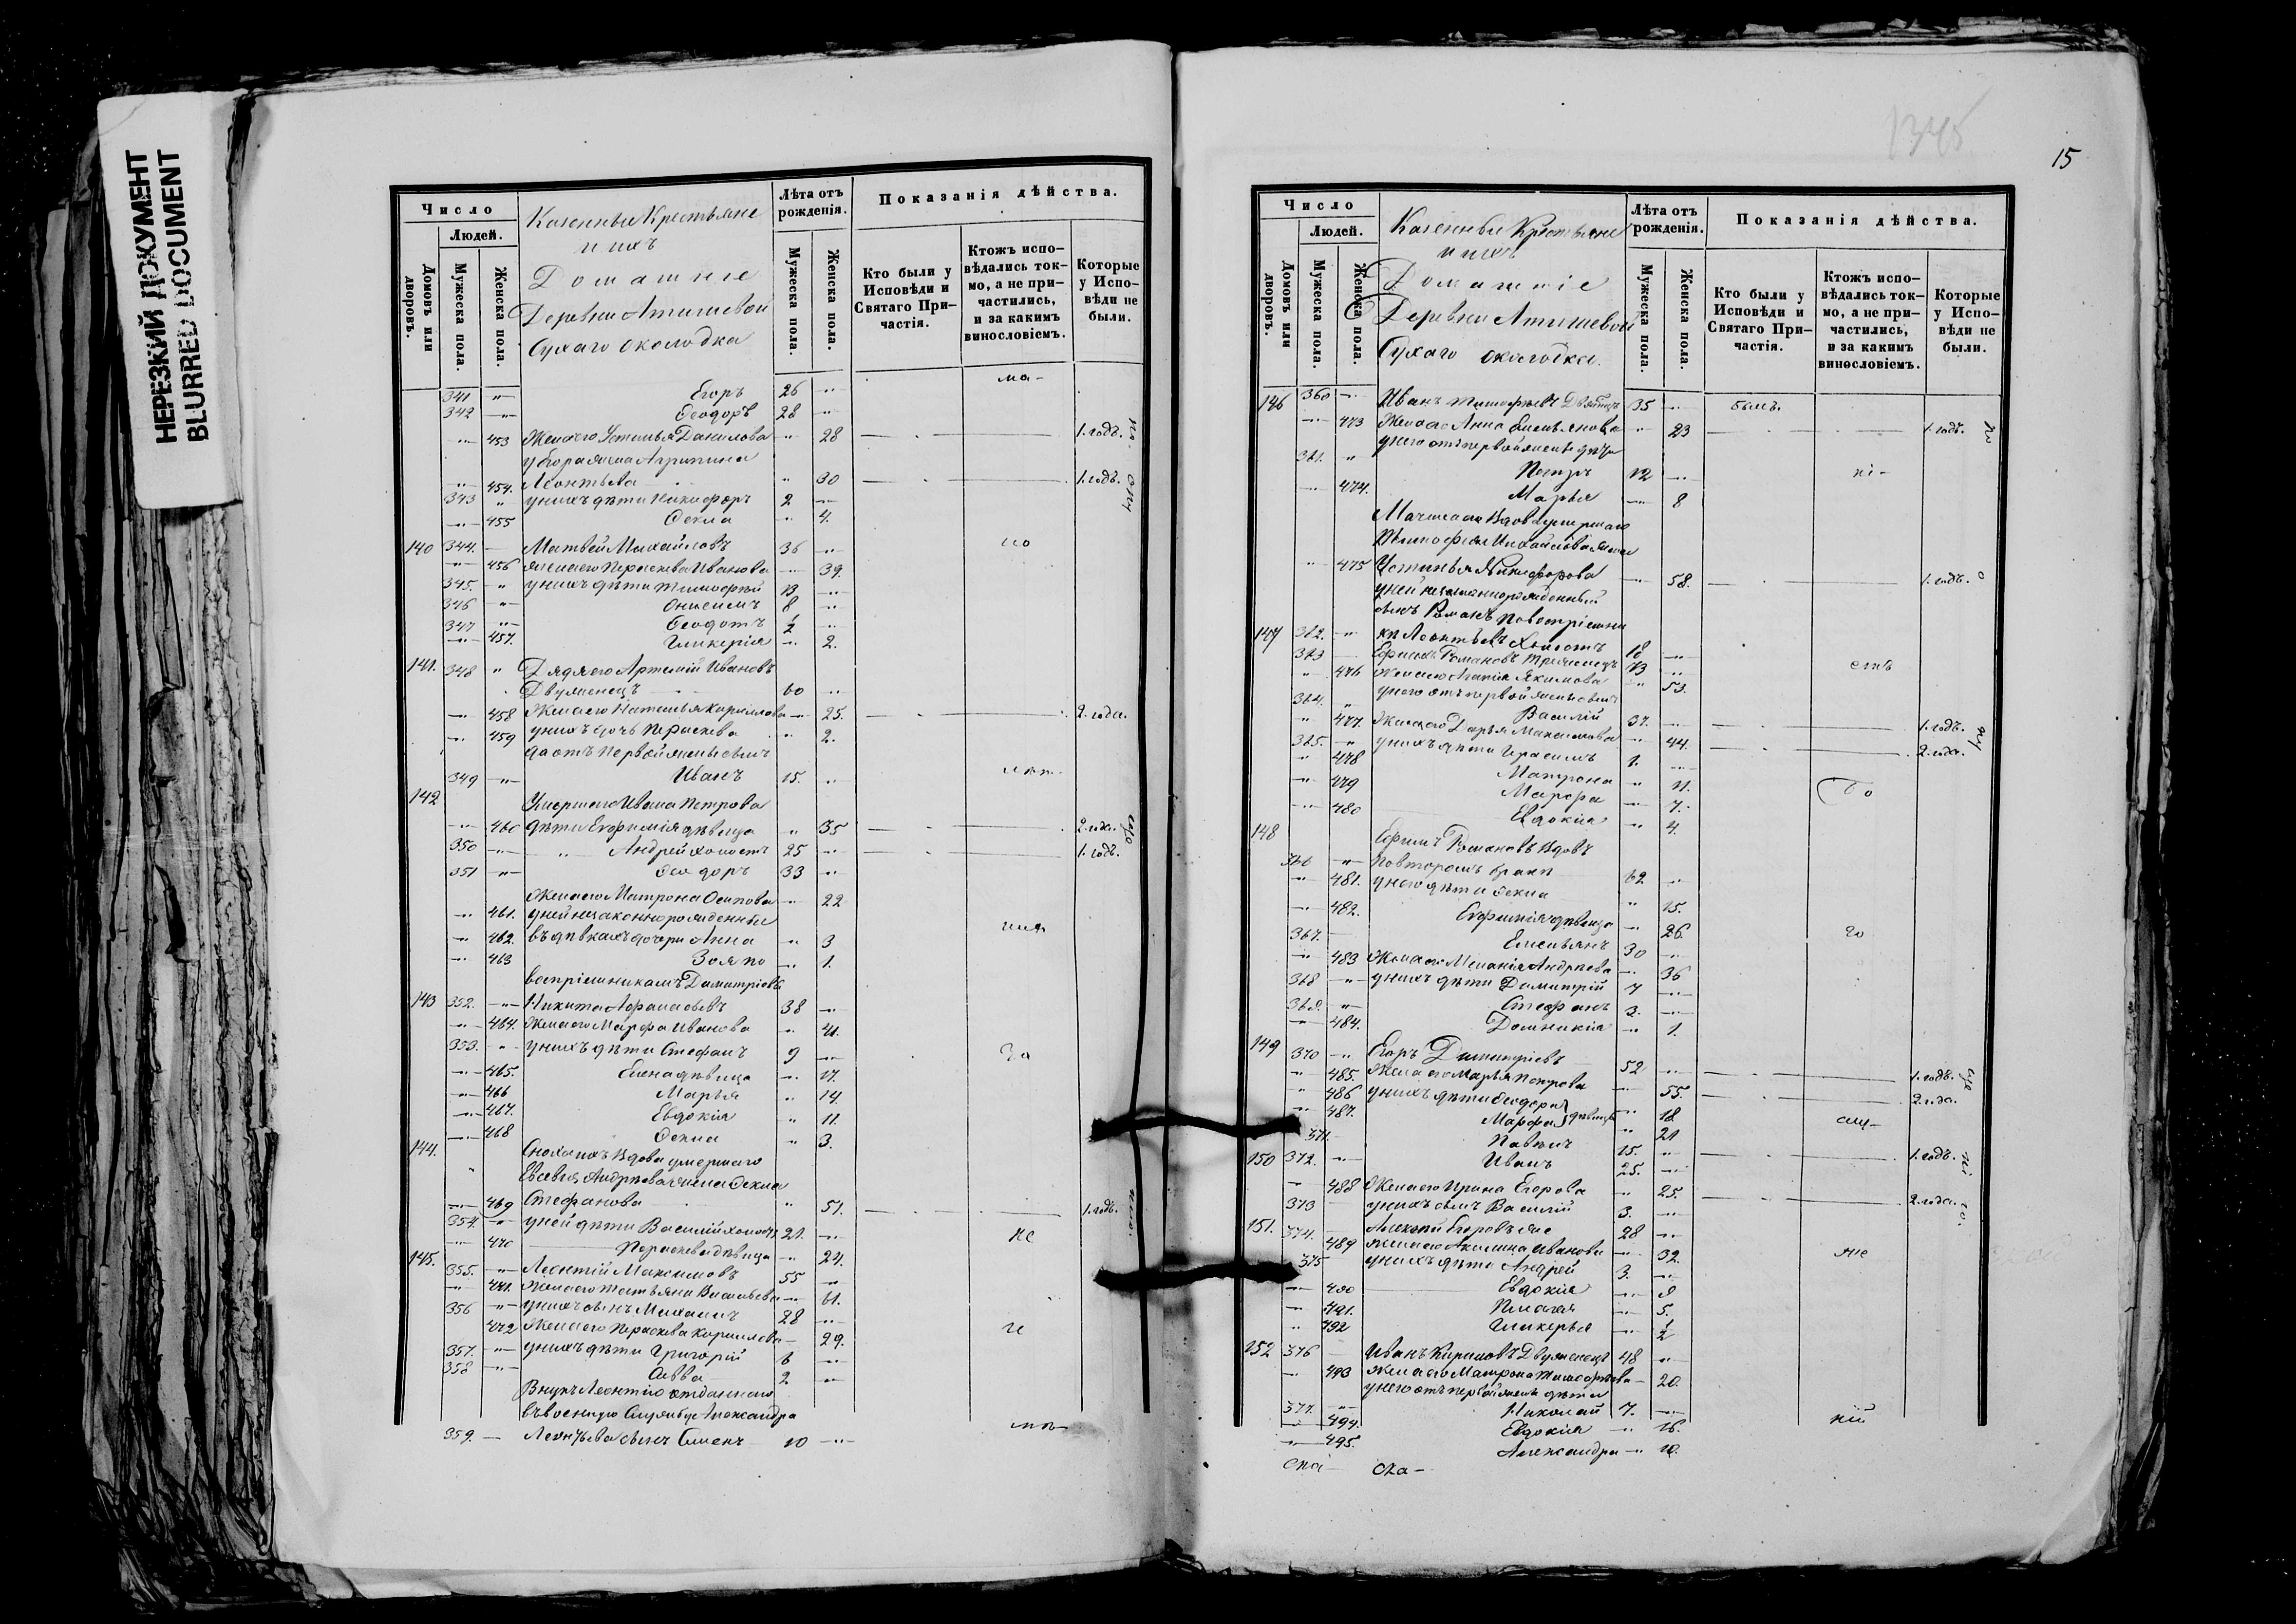 НЕРЕЗКИЙ ДОКУМЕНТ
BLURRED DOCUMENT
Число
Людей.
Домовъ или дворовъ.
Мужеска пола.
Женска пола.
Казенные Крестьяне
и ихъ
Домашніе
Деревни Атишевой
Сухаго околодка
Лѣта отъ рожденія.
Мужеска пола.
Женска пола.
Показанія дѣйства.
Кто были у Исповѣди и Святаго Причастія.
Ктожъ исповѣдались токмо, а не причастились, и за какимъ винословіемъ.
Которые у Исповѣди не были.
341 Егоръ 26
342 Ѳеодоръ 28
453 Жена его Устинья Данилова 28 1. годъ.
у Егора жена Агрипина
454. Леонтьева 30 1. годъ.
343 у нихъ дѣти Никифоръ 2
455 Ѳекла 4.
140 344. Матвей Михайловъ 36
456 жена его Параскева Иванова 39.
345. у нихъ дѣти Тимофей 13
346 Онисимъ 8
347 Ѳеодотъ ½
457. Гликерія 2.
141. 348 Дядя его Артемій Ивановъ
Двуженецъ 60
458 Жена его Наталья Кириллова 25. 2. года.
459 у нихъ дочь Параскева 2.
да отъ первой жены сынъ
349 Иванъ 15.
142 Умершаго Ивана Петрова
460 дѣти Евфимія дѣвица 35 2. года.
350 Андрей холостъ 25 1. годъ.
351 Ѳеодоръ 33
Жена его Матрона Осипова 22
461. у ней незаконнорожденные
462. въ дѣвкахъ дочери Анна 3
463 Зоя по 1.
воспріемникамъ Димитріевы
143 352. Никита Афанасьевъ 38
464. Жена его Марфа Иванова 41.
353. у нихъ дѣти Стефанъ 9
465. Елена дѣвица 17.
466 Марья 14
467. Евдокія 11.
468 Ѳекла 3.
144. Сноха ихъ Вдова умершаго
Евсевія Андреева жена Ѳекла
469 Стефанова 51. 1. годъ.
354. у ней дѣти Василій холостъ 21.
470 Параскева дѣвица 24.
145. 355. Леонтій Максимовъ 55
471. Жена его Татьяна Васильева 61.
356 у нихъ сынъ Михаилъ 28
472 Жена его Параскева Кириллова 29.
357. у нихъ дѣти Григорій 6
358 Савва 2
Внукъ Леонтію отданнаго
въ военную службу Александра
359. Леонтьева сынъ Семенъ 10
15
Число
Людей.
Домовъ или дворовъ.
Мужеска пола.
Женска пола.
Казенные Крестьяне
и ихъ
Домашніе
Деревни Атишевой
Сухаго околодка.
Лѣта отъ рожденія.
Мужеска пола.
Женска пола.
Показанія дѣйства.
Кто были у Исповѣди и Святаго Причастія.
Ктожъ исповѣдались токмо, а не причастились, и за какимъ винословіемъ.
Которые у Исповѣди не были.
146 360 Иванъ Тимофеевъ 35 былъ.
473 Жена его Анна Емельянова 23 1. годъ.
у него отъ первой жены дѣти
361. Петръ 12
474. Марья 8
Мачиха ихъ Вдова умершаго
Тимофея Михайлова жена
475 Устинья Никифорова 58. 1. годъ.
у ней незаконнорожденный
сынъ Романъ по воспріемни
147 362. ку Леонтьевъ Холостъ 18
363 Ефимъ Романовъ Троеженецъ 73
476 Жена его Агапія Якимова 53.
у него отъ первой жены сынъ
364. Василій 37. 1. годъ.
477. Жена его Дарья Максимова 44. 2. года.
365. у нихъ дѣти Герасимъ 1.
478 Матрона 11.
479 Марфа 7.
480 Евдокія 4.
148 Ефимъ Романовъ Вдовъ
366 по второмъ бракѣ 62
481. у него дѣти Ѳекла 15.
482. Евфимія дѣвица 26
367. Емельянъ 30
483 Жена его Меланія Андреева 36
368 у нихъ дѣти Димитрій 7
369. Стефанъ 3.
484. Домникія 1.
149 370 Егоръ Димитріевъ 52
485. Жена его Марья Петрова 55. 1. годъ.
486 у нихъ дѣти Ѳеодора 18 2. года.
487. Марфа } дѣвицы 21
371. Павелъ 15.
150 372. Иванъ 25. 1. годъ.
488 Жена его Ирина Егорова 25. 2. года.
373 у нихъ сынъ Василій 3.
151. 374. Алексѣй Егоровъ же 28
489 Жена его Акилина Иванова 32.
375 у нихъ дѣти Андрей 3.
490 Евдокія 9
491. Пелагія 5.
492 Гликерья ½
152 376 Иванъ Кириловъ Двуженецъ 48
493 Жена его Матрона Тимофеева 20.
у него отъ первой жены дѣти
377. Николай 7.
494. Евдокія 16.
495. Александра 10.